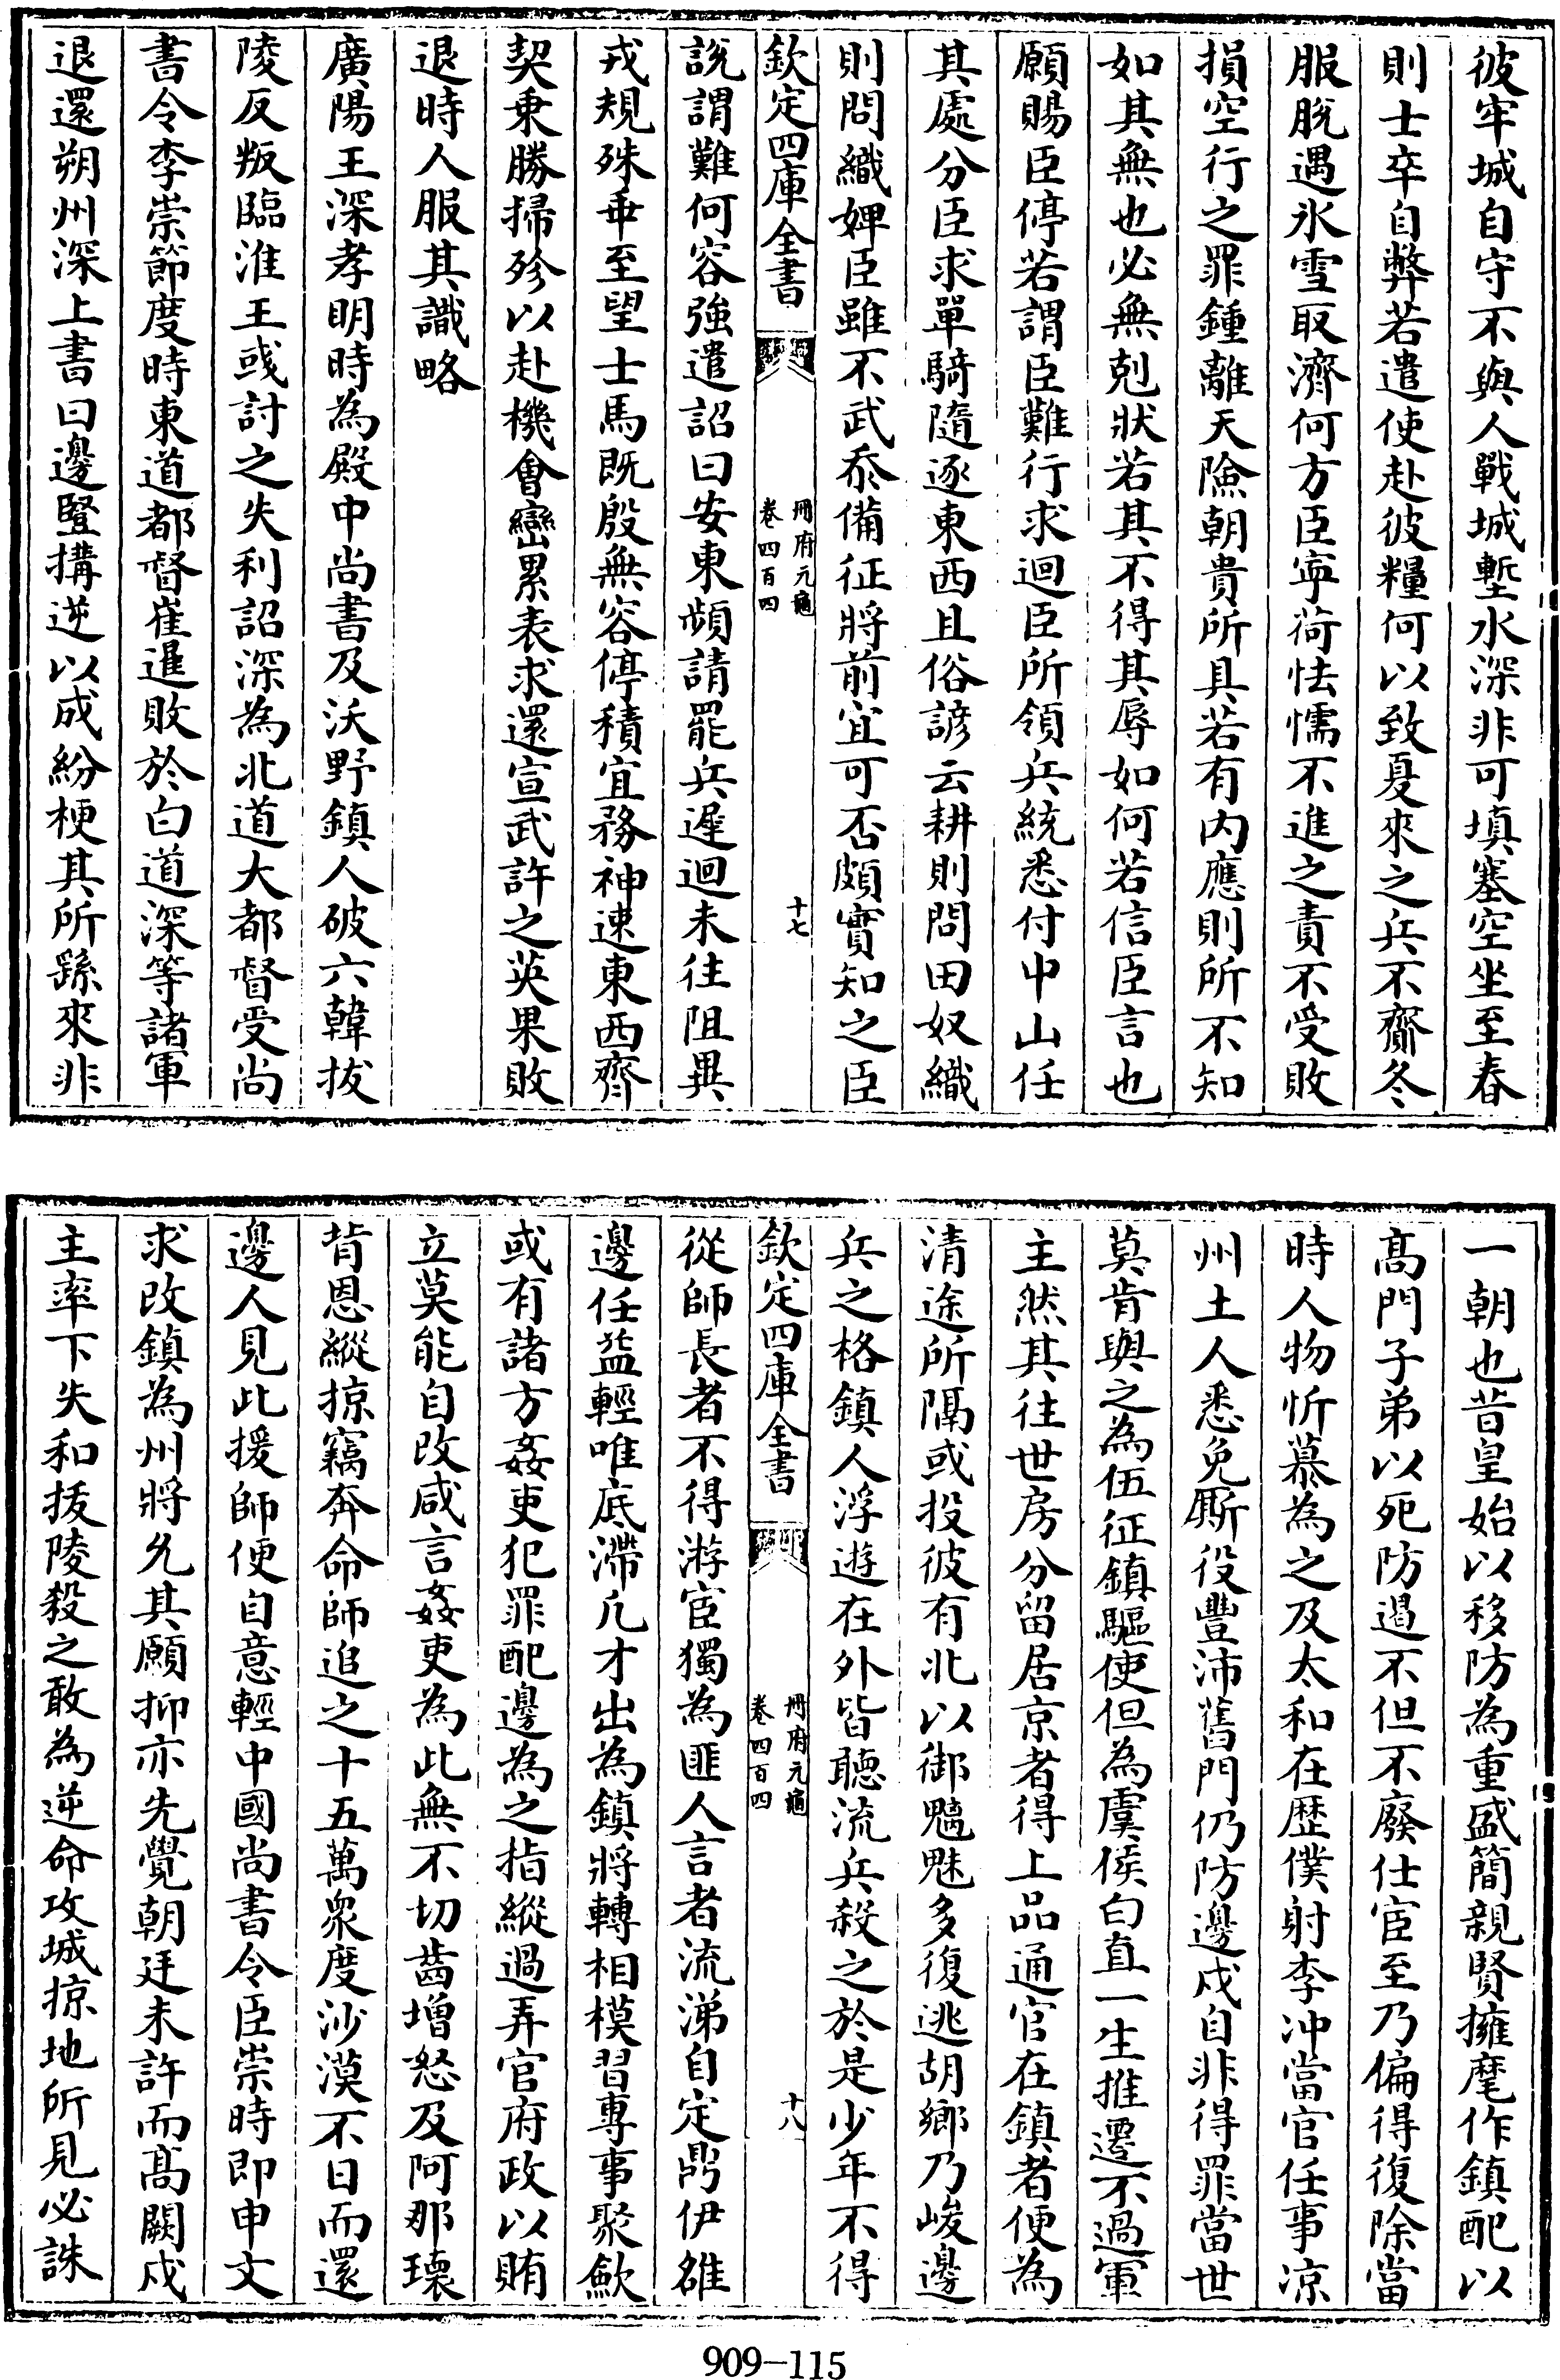 彼牢城自守不與人戰城塹水深非可填塞空坐至春
則士卒自弊若遣使赴彼糧何以致夏來之兵不齎冬
服脫遇氷雪取濟何方臣寧荷怯懦不進之責不受敗
損空行之罪鍾離天險朝貴所具若有内應則所不知
如其無也必無剋狀若其不得其辱如何若信臣言也
願賜臣停若謂臣難行求迴臣所領兵統悉付中山任
其處分臣求單騎隨逐東西且俗諺云耕則問田奴織
則問織婢臣雖不武忝備征將前宜可否頗實知之臣
欽定四庫全書
冊府元龜
卷四百四
十七
說謂難何容強遣詔曰安東頻請罷兵遲迴未往阻異
戎規殊乖至望士馬既殷無容停積宜務神速東西齊
契乗勝掃殄以赴機會巒累表求還宣武許之英果敗
退時人服其識略
廣陽王深孝明時為殿中尚書及沃野鎮人破六韓拔
陵反叛臨淮王彧討之失利詔深為北道大都督受尚
書令李崇節度時東道都督崔暹敗於白道深等諸軍
退還朔州深上書曰邊豎搆逆以成紛梗其所繇來非
一朝也昔皇始以移防為重盛簡親賢擁麾作鎮配以
髙門子弟以死防遏不但不廢仕宦至乃偏得復除當
時人物忻慕為之及太和在歴僕射李冲當官任事凉
州土人悉免厮役豐沛舊門仍防邊戍自非得罪當世
莫肯與之為伍征鎮驅使但為虞侯白直一生推遷不過軍
主然其往世房分留居京者得上品通官在鎮者便為
清途所隔或投彼有北以御魑魅多復逃胡鄉乃峻邊
兵之格鎮人浮遊在外皆聽流兵殺之於是少年不得
欽定四庫全書
冊府元龜
卷四百四
十八
從師長者不得游宦獨為匪人言者流涕自定鼎伊雒
邊任益輕唯底滯凡才出為鎮將轉相模習專事聚歛
或有諸方姦吏犯罪配邊為之指縱過弄官府政以賄
立莫能自改咸言姦吏為此無不切齒增怒及阿那瓌
背恩縱掠竊奔命師追之十五萬衆度沙漠不日而還
邊人見此援師便自意輕中國尚書令臣崇時即申文
求改鎮為州將允其願抑亦先覺朝廷未許而髙闕戍
主率下失和拔陵殺之敢為逆命攻城掠地所見必誅
909-115